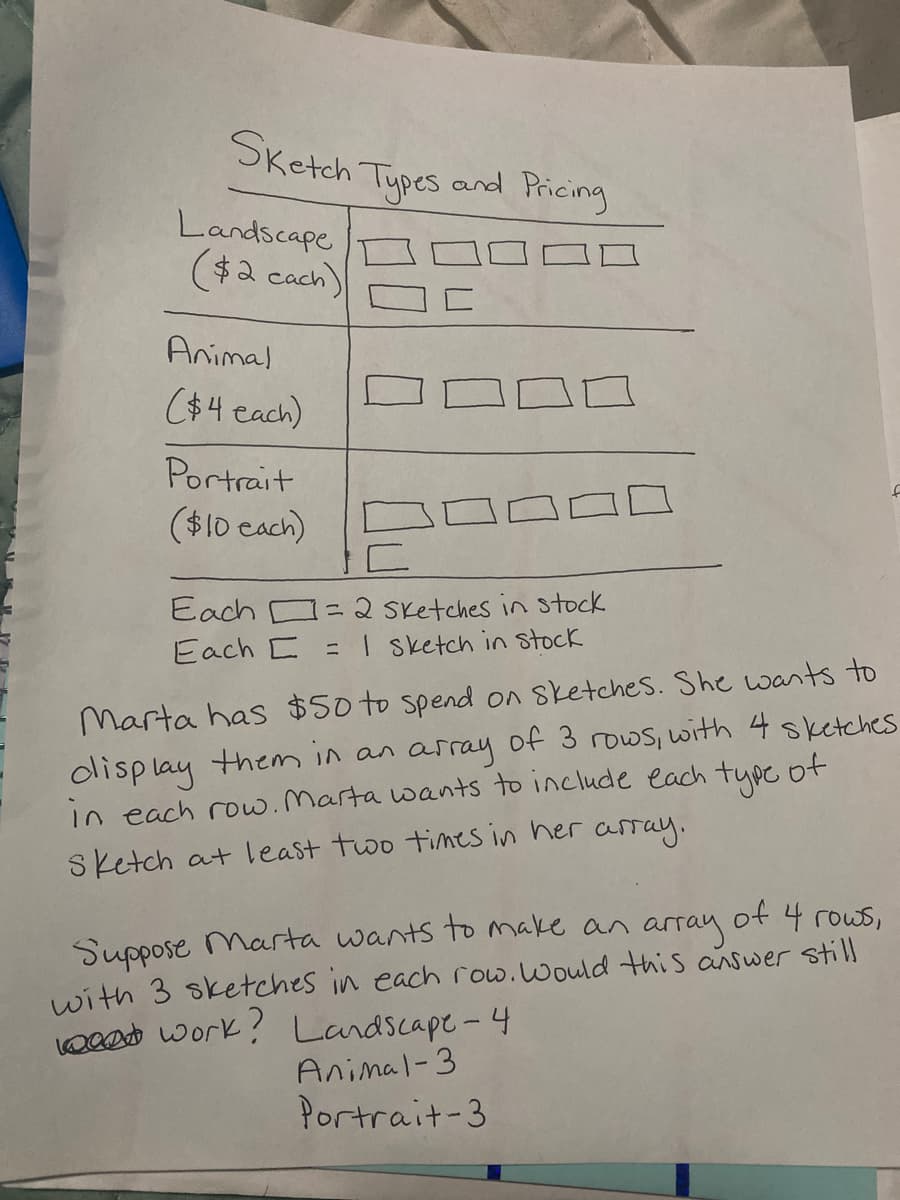 Sketch Types and Pricing
Landscape
($2 each)
Animal
($4 each)
Portrait
($10 each)
Each = 2 sketches in stock
Each = 1 sketch in stock
Marta has $50 to spend on sketches. She wants to
display them in an array of 3 rows, with 4 sketches
in each row. Marta wants to include each type of
sketch at least two times in her array.
Suppose Marta wants to make an array of 4 rows,
with 3 sketches in each row. Would this answer still
work? Landscape-4
Animal-3
Portrait-3